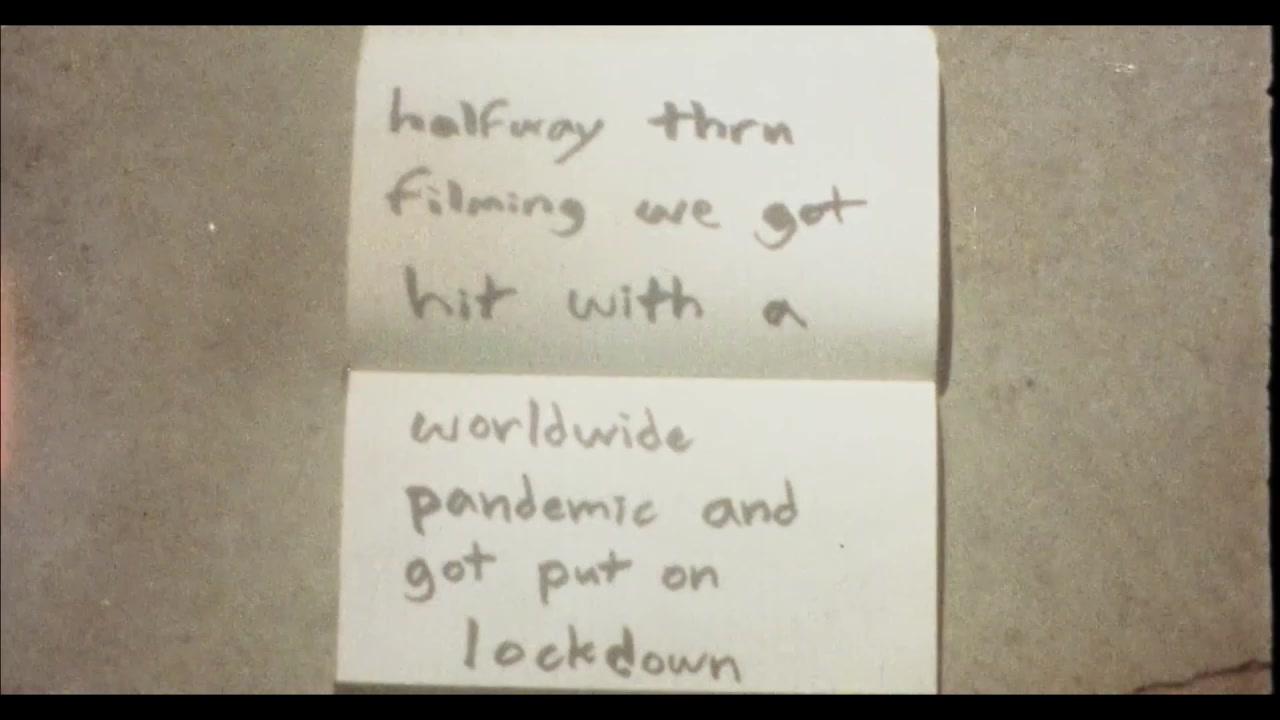 halfway thru
filming we got
hit with a
worldwide
pandemic and
got put on
lockdown